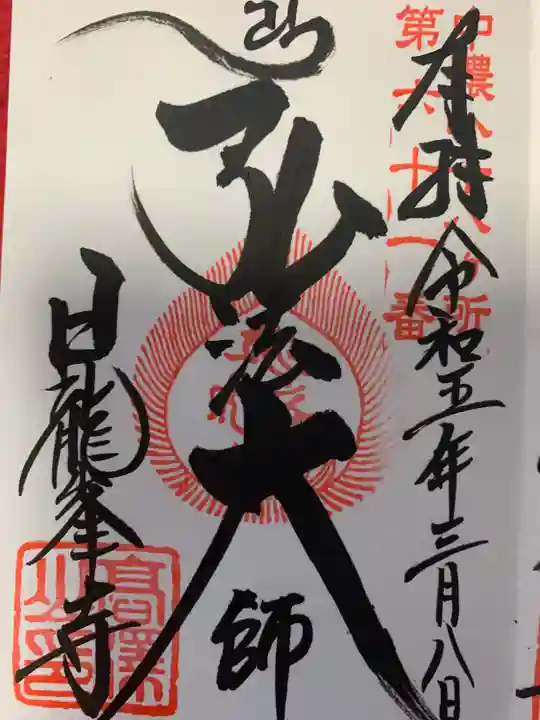 奉拝
令和五年三月八日
中濃八十八ヶ所
第六十一番
弘法大師
日龍峯寺